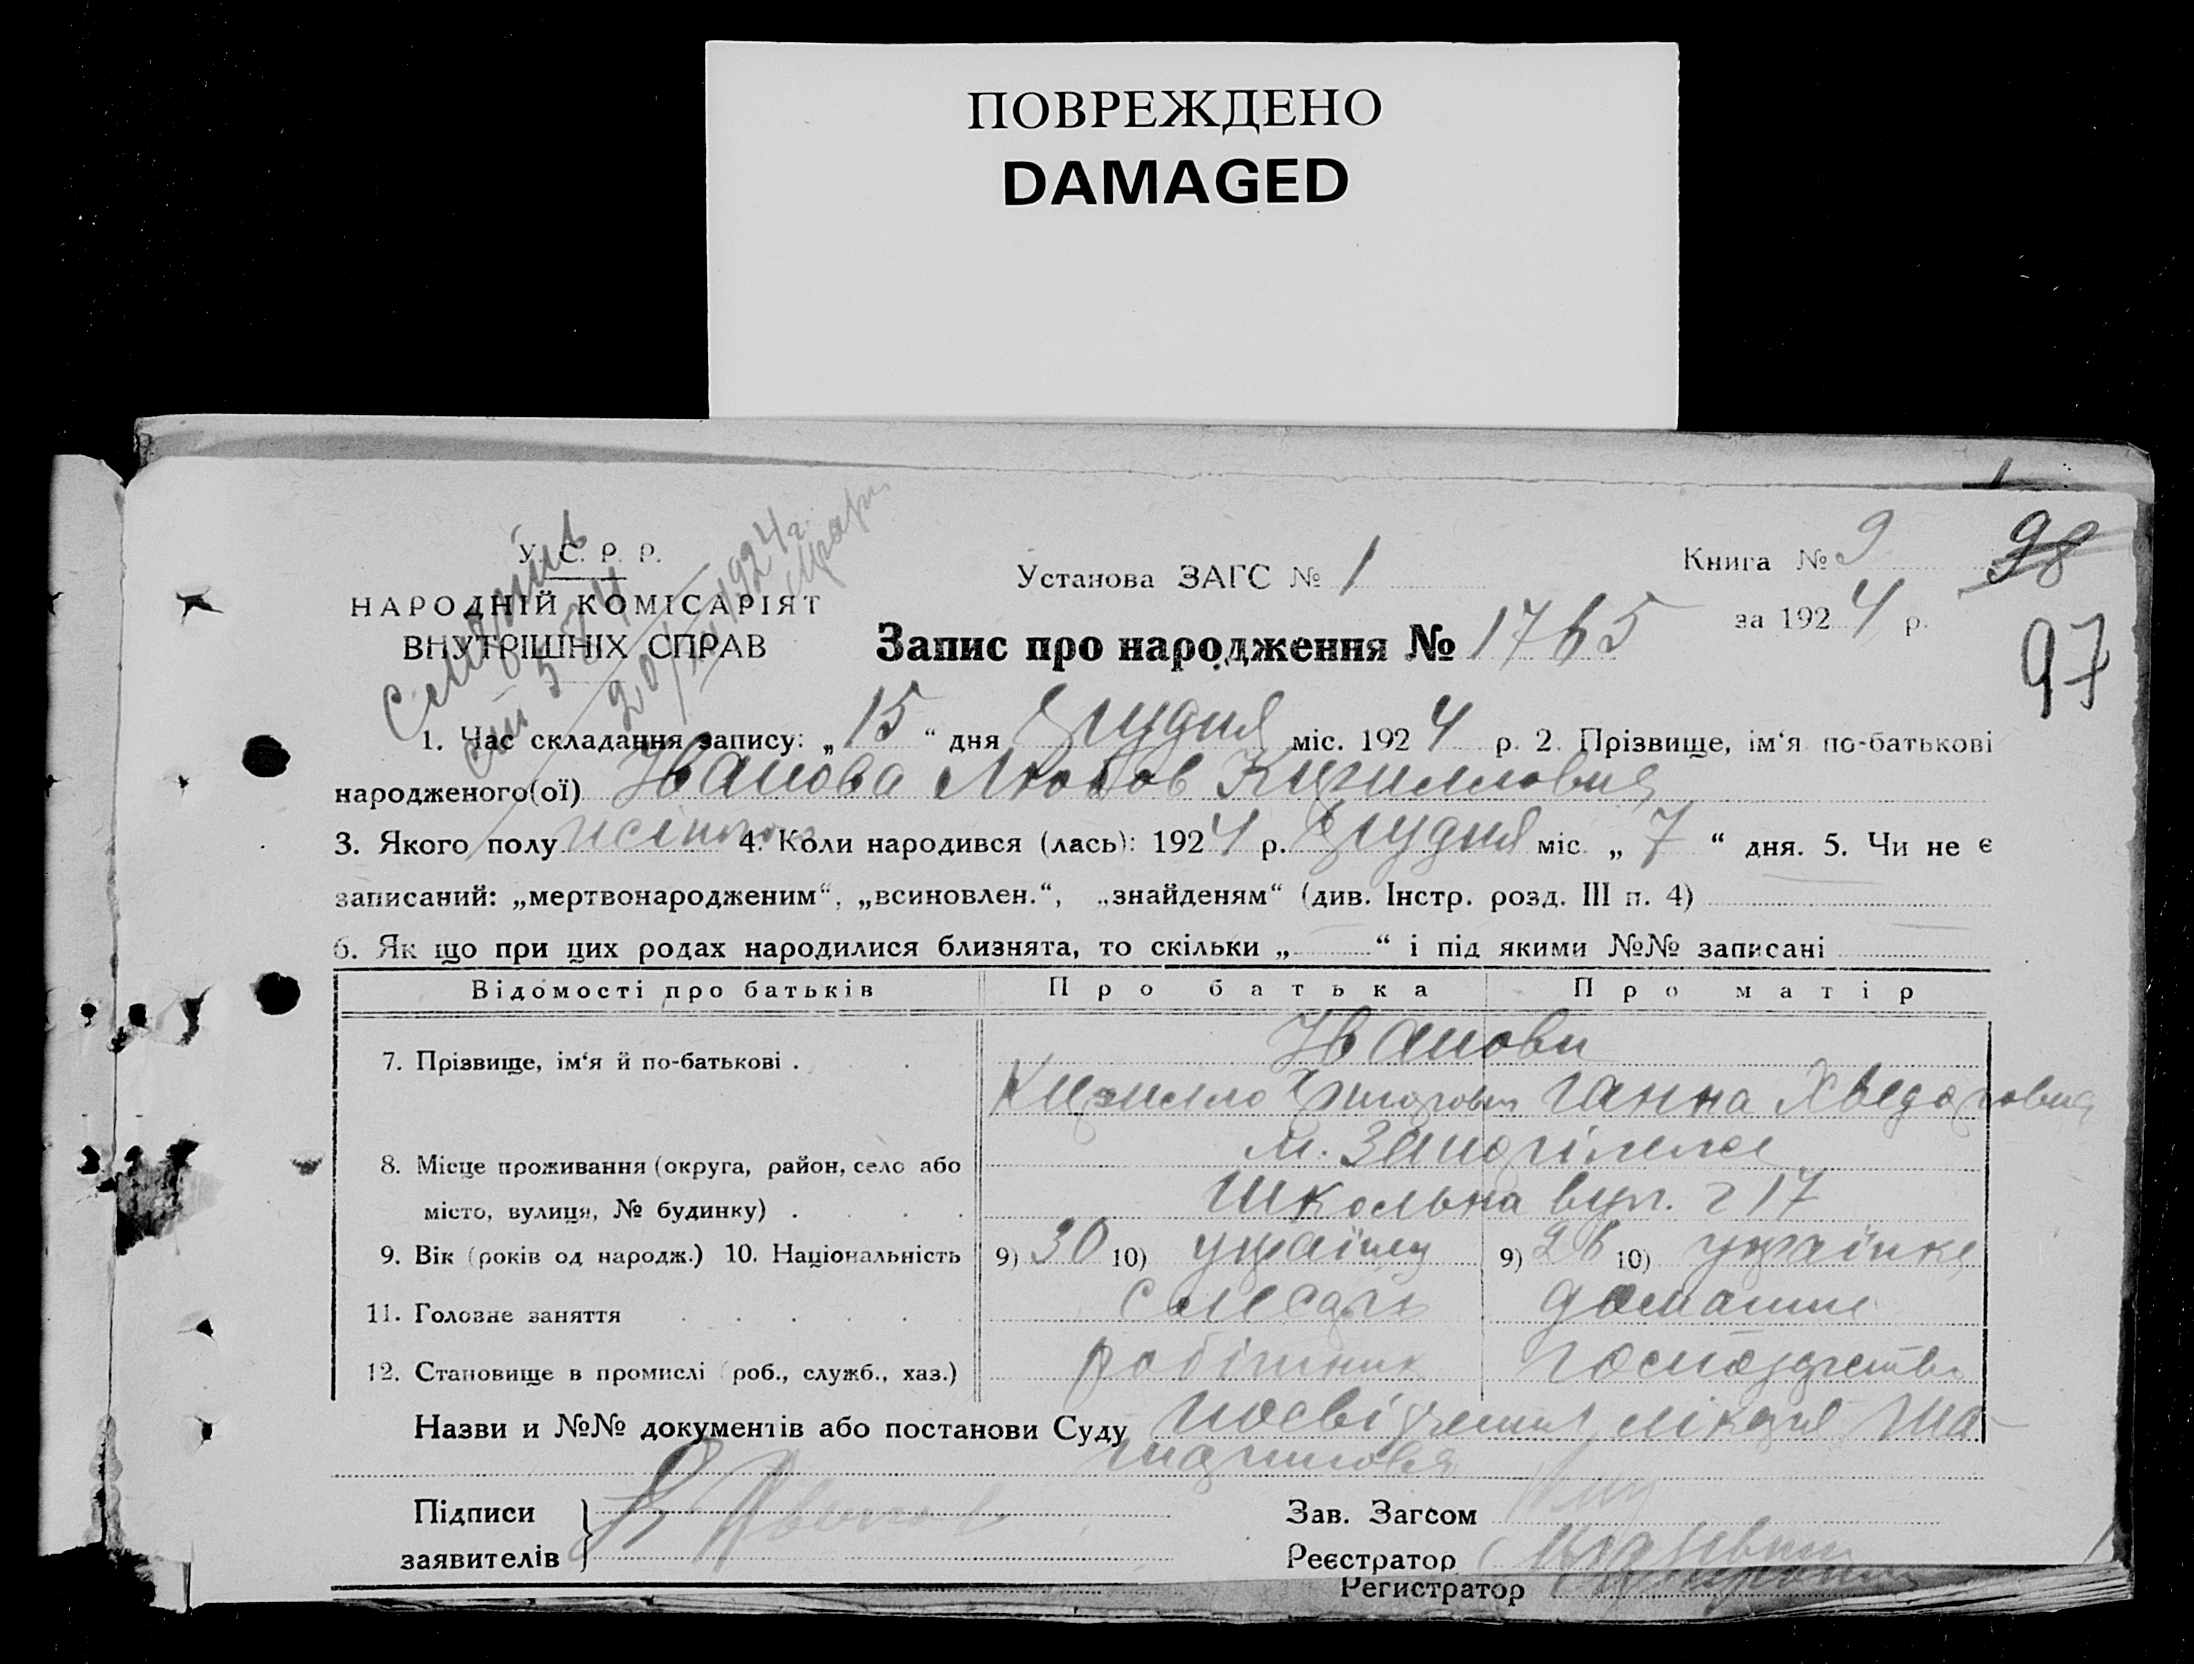 ПОВРЕЖДЕНО
DAMAGED
У. С. Р. Р.
НАРОДНІЙ КОМІСАРІЯТ
ВНУТРІШНІХ СПРАВ
20/XII 1924 г.
Установа ЗАГС № 1
Книга № 9
98
за 1924 р.
97
Запис про народження № 1765
1. Час складання запису: „15“ дня Грудня міс. 1924 р. 2. Прізвище, ім‘я по-батькові
народженого(ої) Іванова Любов Кирилловна
3. Якого полу жіноч. 4. Коли народився (лась): 1924 р. Грудня міс. „7“ дня. 5. Чи не є
записаний: „мертвонародженим“, „всиновлен.“, „знайденям“ (див. Інстр. розд. III п. 4)
6. Як що при цих родах народилися близнята, то скільки „ “ і під якими №№ записані
Відомості про батьків Про батька Про матір
7. Прізвище, ім‘я й по-батькові . Іванови
Кирилло Григорович Ганна Хведоровна
8. Місце проживання (округа, район, село або м. Запоріжжє
місто, вулиця, № будинку) . Школьна вул. 17
9. Вік (років од народж.) 10. Національність 9) 30 10) українец 9) 26 10) українка
11. Головне заняття слесарь домашнє
12. Становище в промислі (роб., служб., хаз.) робітник господарство
Назви и №№ документів або постанови Суду посвідчення лікаря
Підписи
заявителів
Зав. Загсом
Реєстратор
Регистратор